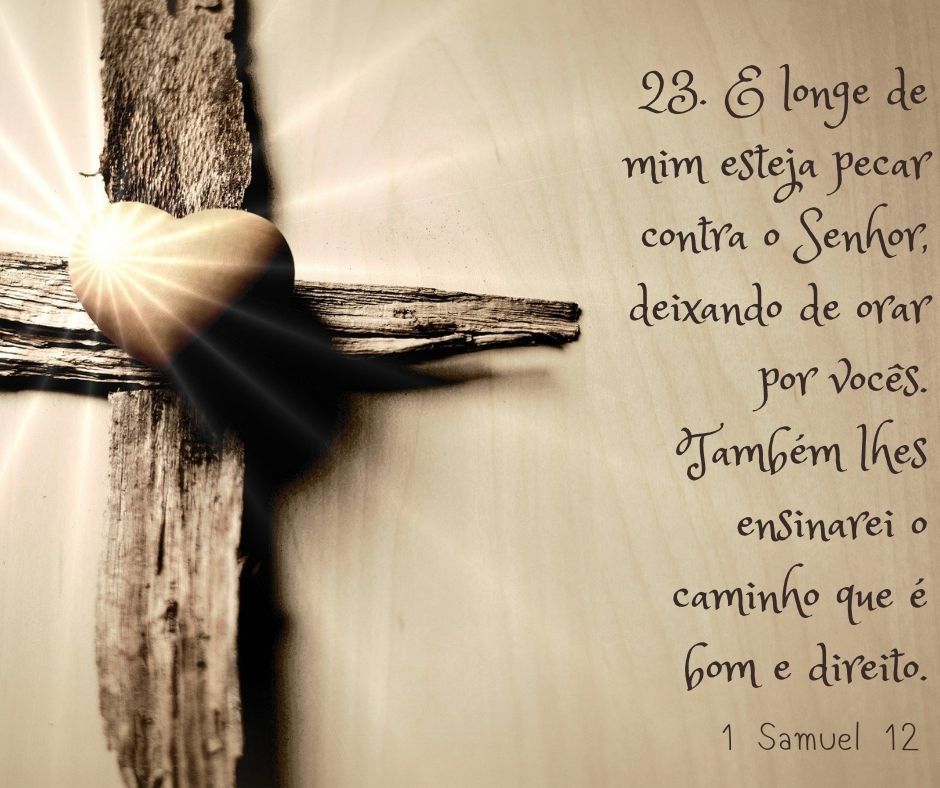 23. E longe de
mim esteja pecar
contra o Senhor,
deixando de orar
por vocês.
Também lhes
ensinarei o
caminho que é
bom e direito.
1 Samuel 12